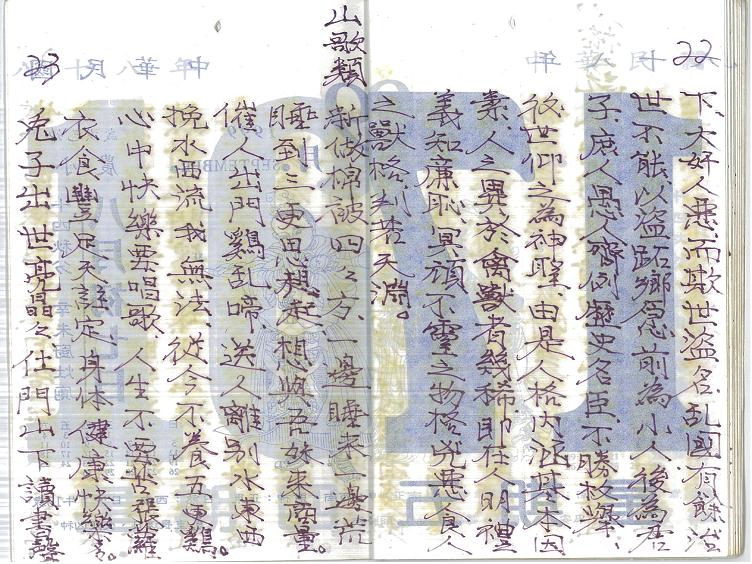 22
下、大奸人惡、而欺世盜名、乱国有餘、治
世不能、以盜跖鄉愿、前為小人、後為君
子、庶人愚人、齊例歷史名臣、不勝枚舉、
後世仰之為神聖、由是人格內涵、基本因
素、人之異於禽獸者幾稀、即在人明禮
義知廉恥、冥頑不靈之物格、兇惡食人
之獸格、別若天淵。
23
山歌類
新做棉被四々方、一邊睡來一邊荒
睡到三更思想起、想與吾妹來商量。
催人出門鷄乱啼、送人離別水東西
挽水西流我無法、從今不養五更鷄。
心中快樂要唱歌、人生不要苦張羅
衣食豐足天註定、身体健康快樂多。
兔子出世亮晶々、仕門山下讀書聲